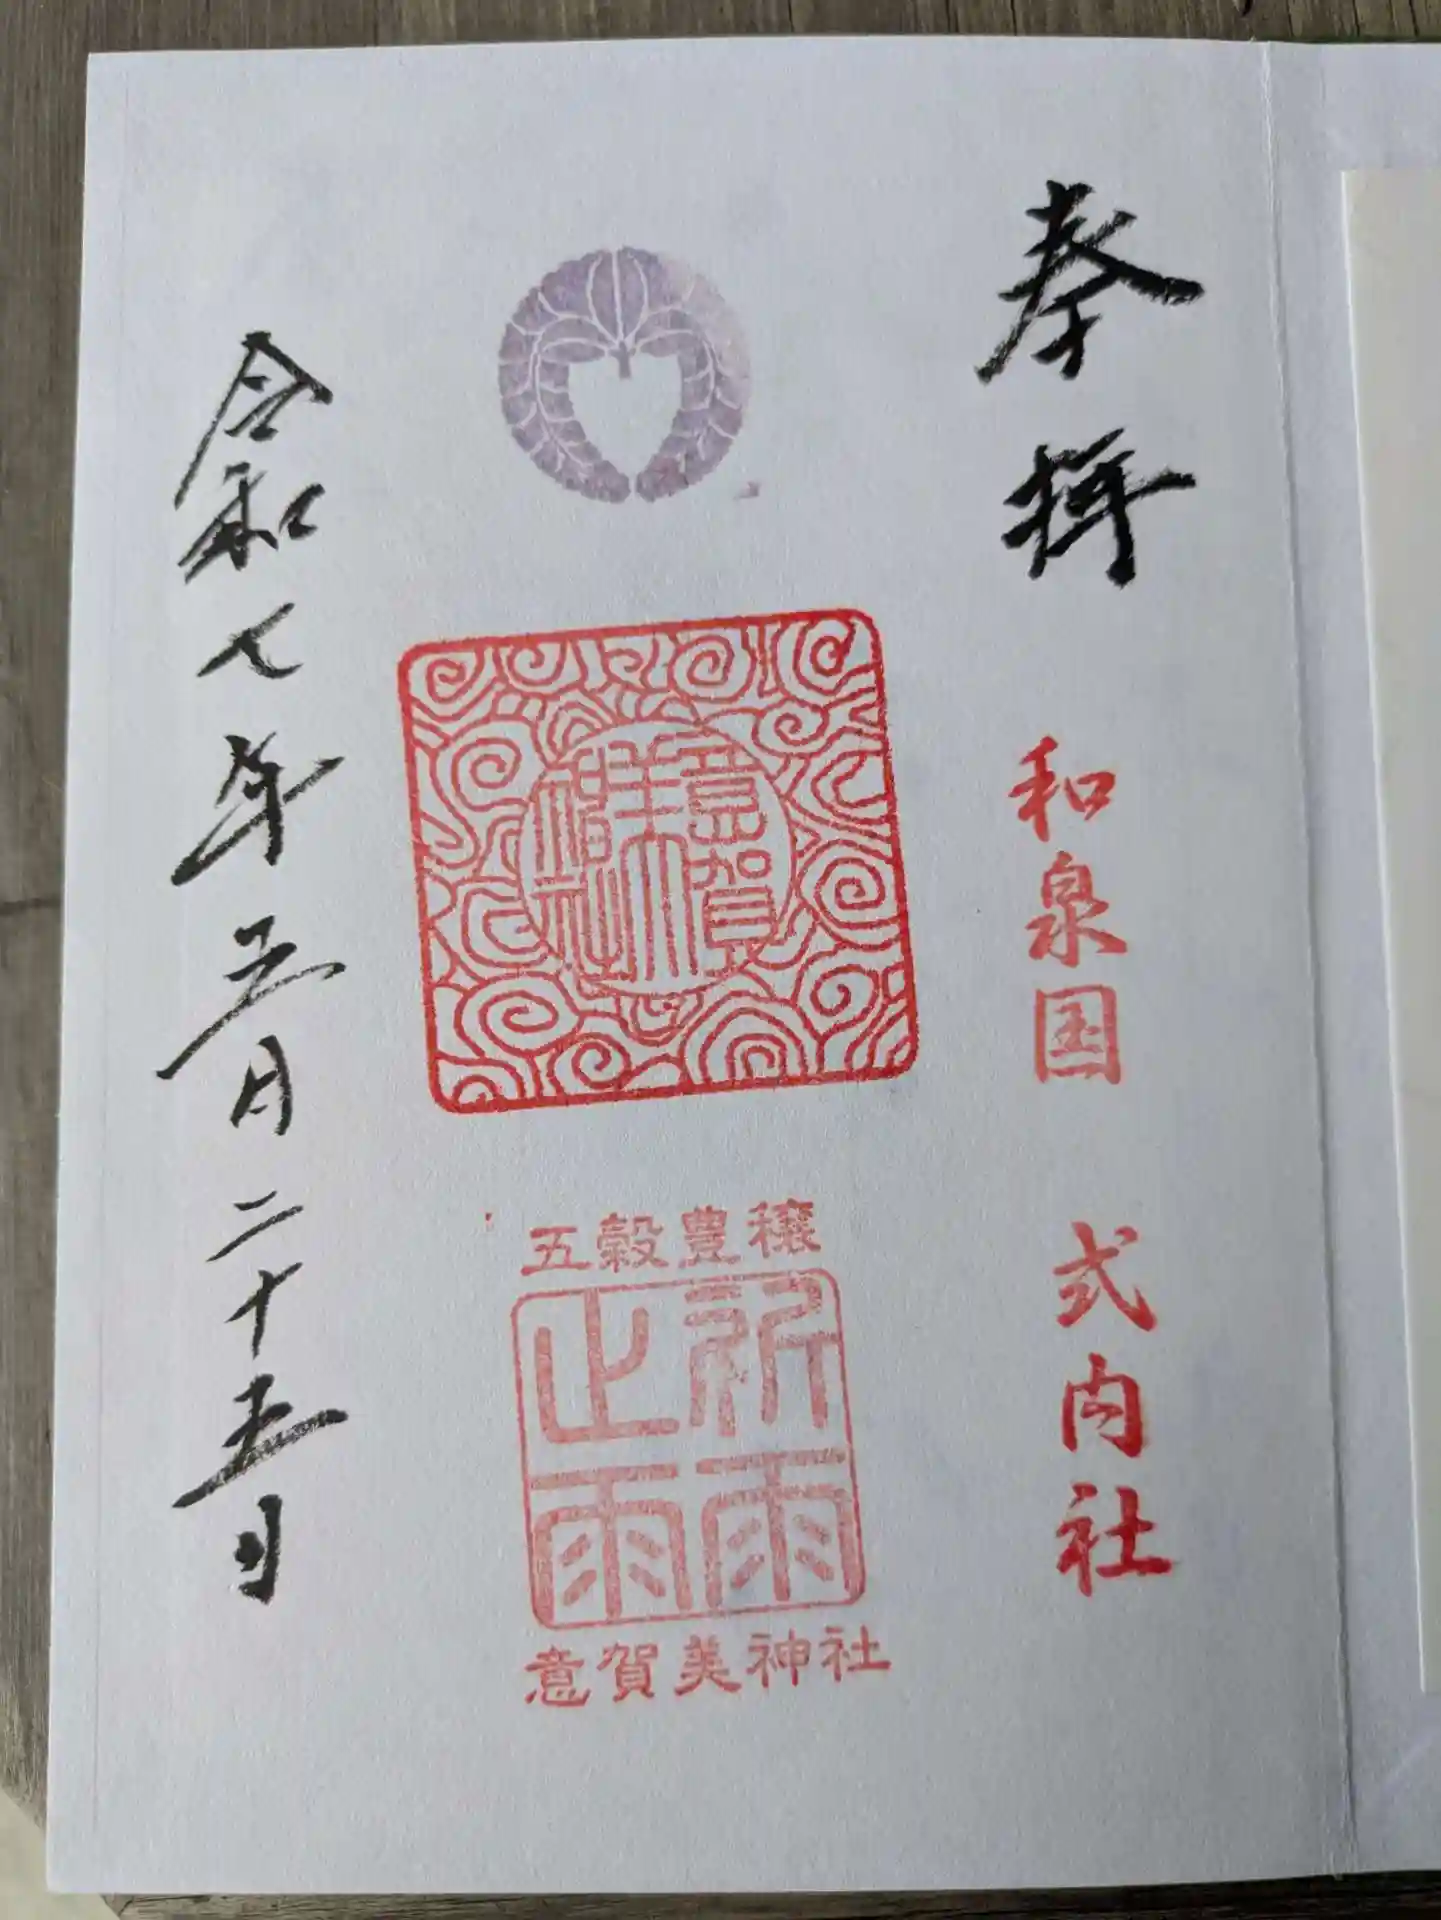 奉拝
和泉国 式内社
意賀
美
神社
五穀豊穣
祈雨
止雨
意賀美神社
令和七年五月二十五日